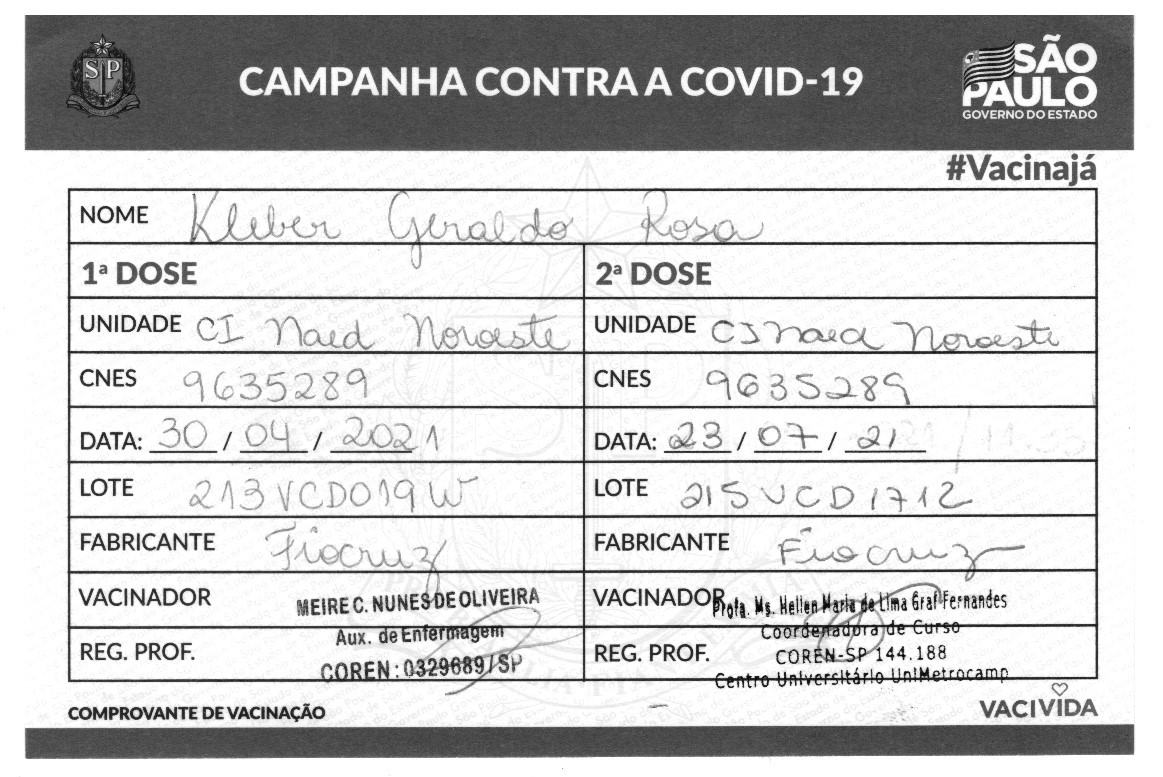 SP
CAMPANHA CONTRA A COVID-19
SÃO
PAULO
GOVERNO DO ESTADO
#Vacinajá
NOME Kleber Geraldo Rosa
1ª DOSE 2ª DOSE
UNIDADE CI Naed Noroeste UNIDADE CI Naed Noroeste
CNES 9635289 CNES 9635289
DATA: 30 / 04 / 2021 DATA: 23 / 07 / 21
LOTE 213VCD019W LOTE 215VCD171Z
FABRICANTE Fiocruz FABRICANTE Fiocruz
VACINADOR MEIRE C. NUNES DE OLIVEIRA VACINADOR Profa. Ms. Hellen Maria de Lima Graf Fernandes
Aux. de Enfermagem Coordenadora de Curso
REG. PROF. COREN: 0329689/SP REG. PROF. COREN-SP 144.188
Centro Universitário UniMetrocamp
COMPROVANTE DE VACINAÇÃO VACIVIDA